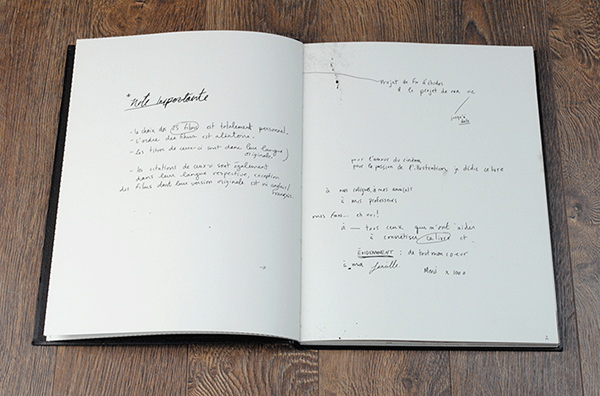 * Note importante
- le choix des 25 films est totalement personnel.
- L'ordre des films est aléatoire.
- Les titres de ceux-ci sont dans leur langue
originale
- les citations de ceux-ci sont également
dans leur langue respective, exception
des films dont leur version originale est ni anglais/
français.
Projet de fin d'études
& le projet de ma vie
jusqu'à
date
pour l'amour du cinéma
pour la passion de l'illustration, je dédie ce livre
à mes collègues, à mes ami(e)s
à mes professeurs
mes fans... eh oui!
à — tous ceux qui m'ont aider
à concrétiser ce livre et
ÉVIDEMMENT : de tout mon coeur
à ma famille.
Merci x 1000